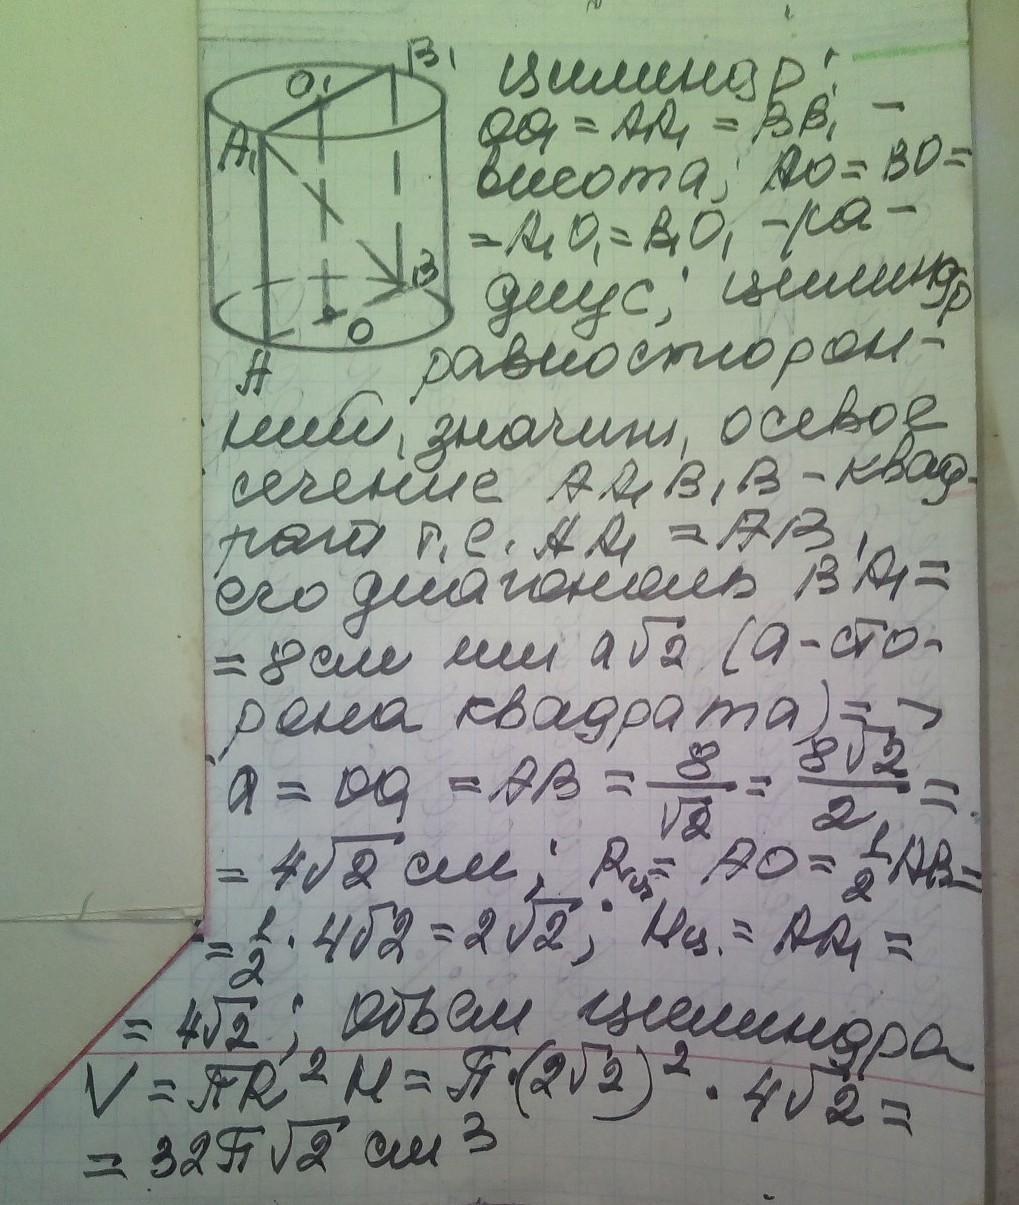 B₁
O₁
A₁
B
O
A
цилиндр:
OO₁ = AA₁ = BB₁ –
высота; AO = BO =
= A₁O₁ = B₁O₁ – ра-
диус; цилиндр
равносторон-
ний, значит, осевое
сечение AA₁B₁B – квад-
рат т.е. AA₁ = AB,
его диагональ BA₁ =
= 8 см или a√2 (a – сто-
рона квадрата) = >
a = OO₁ = AB = 8/√2 = 8√2/2 =
= 4√2 см; Rц = AO = 1/2 AB =
= 1/2 · 4√2 = 2√2; Hц. = AA₁ =
= 4√2; объем цилиндра
V = πR² H = π·(2√2)² · 4√2 =
= 32π√2 см³